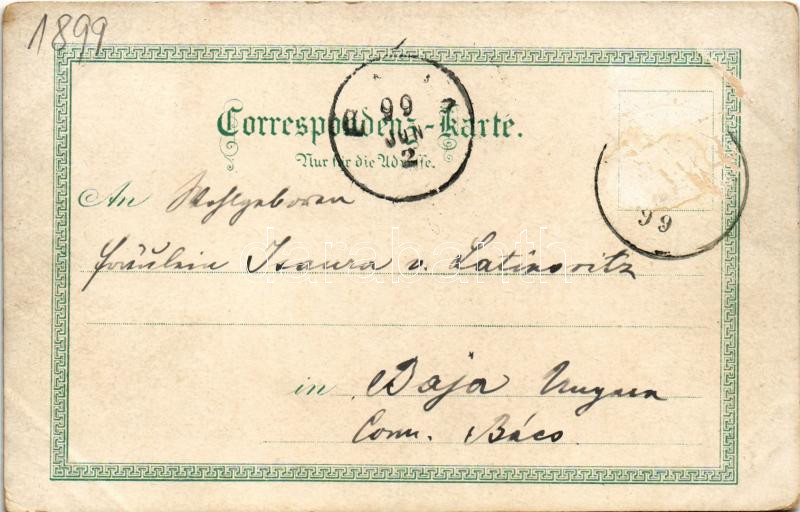 1899
Correspondenz-Karte.
Nur für die Adresse.
99 7
JUN
2
99
An Wohlgeboren
Fräulein Isaura v. Latinovitz
in Baja Ungarn
Com. Bács